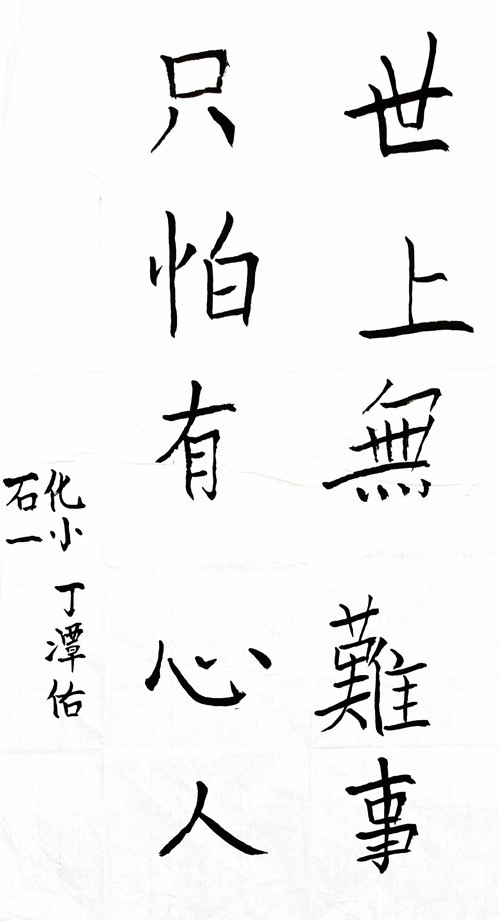 世上無難事
只怕有心人
石一
化小
丁潭佑